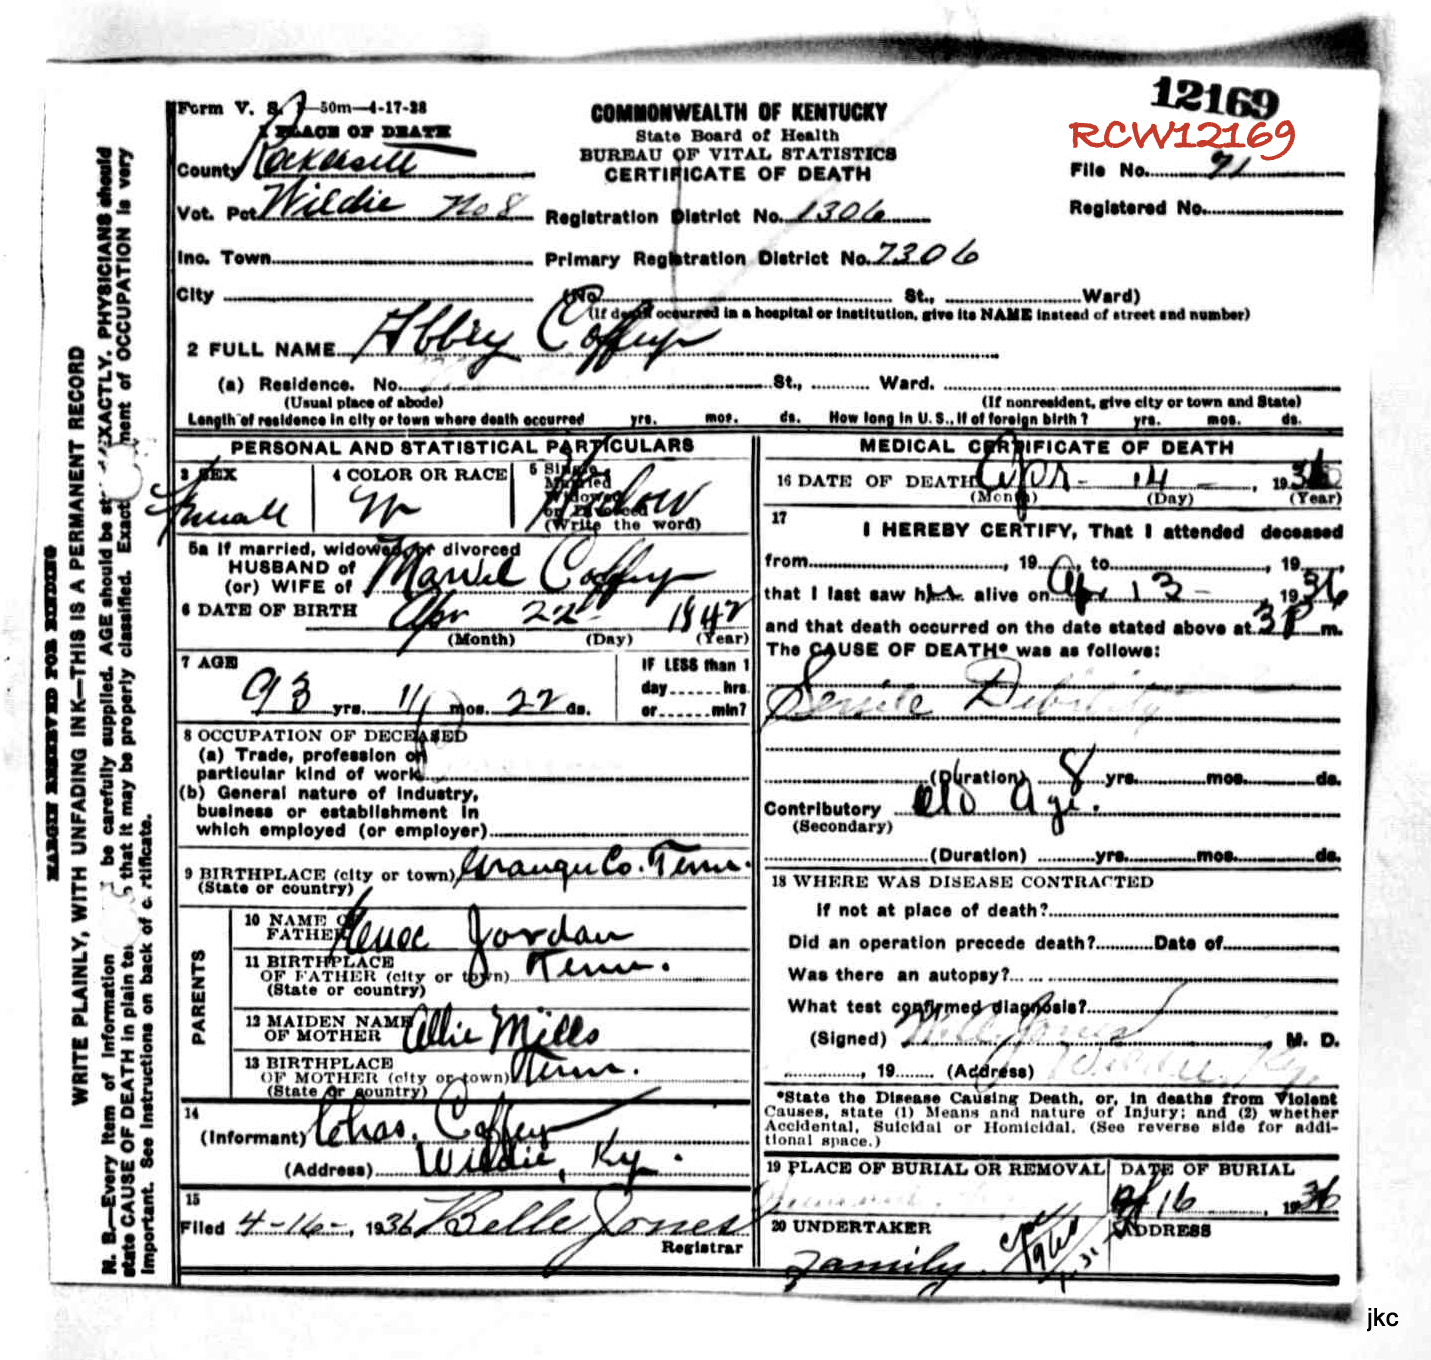 12169
RCW12169
Form V. S. 1—50m—4-17-28
COMMONWEALTH OF KENTUCKY
State Board of Health
BUREAU OF VITAL STATISTICS
CERTIFICATE OF DEATH
1 PLACE OF DEATH
County Rockcastle
File No. 71
Vot. Pct Wildie No 8
Registration District No. 1306
Registered No.
Inc. Town
Primary Registration District No. 7306
City
(No. St., Ward)
(If death occurred in a hospital or institution, give its NAME instead of street and number)
2 FULL NAME Abbey Coffey
(a) Residence. No. St., Ward.
(Usual place of abode) (If nonresident, give city or town and State)
Length of residence in city or town where death occurred yrs. mos. ds. How long in U. S., if of foreign birth? yrs. mos. ds.
PERSONAL AND STATISTICAL PARTICULARS
3 SEX
Female
4 COLOR OR RACE
W
5 Single
Married
Widowed
or Divorced
(Write the word)
Widow
5a If married, widowed, or divorced
HUSBAND of
(or) WIFE of Coffey
6 DATE OF BIRTH Apr 22 1842
(Month) (Day) (Year)
7 AGE
93 yrs. 11 mos. 22 ds.
IF LESS than 1
day hrs.
or min?
8 OCCUPATION OF DECEASED
(a) Trade, profession or
particular kind of work
(b) General nature of industry,
business or establishment in
which employed (or employer)
9 BIRTHPLACE (city or town) Co. Tenn.
(State or country)
PARENTS
10 NAME OF
FATHER Jordan
11 BIRTHPLACE
OF FATHER (city or town) Tenn.
(State or country)
12 MAIDEN NAME
OF MOTHER Allie Mills
13 BIRTHPLACE
OF MOTHER (city or town) Tenn.
(State or country)
14
(Informant) Chas. Coffey
(Address) Wildie, Ky.
15
Filed 4-16-, 1936 Belle Jones
Registrar
MEDICAL CERTIFICATE OF DEATH
16 DATE OF DEATH Apr - 14 -, 1936
(Month) (Day) (Year)
17
I HEREBY CERTIFY, That I attended deceased
from , 19 , to , 19 ,
that I last saw her alive on Apr 13 - 1936
and that death occurred on the date stated above at 3 P m.
The CAUSE OF DEATH* was as follows:
Senile Debility
(Duration) 8 yrs. mos. ds.
Contributory old age.
(Secondary)
(Duration) yrs. mos. ds.
18 WHERE WAS DISEASE CONTRACTED
If not at place of death?
Did an operation precede death? Date of
Was there an autopsy?
What test confirmed diagnosis?
(Signed) Jones, M. D.
, 19 (Address) Wildie, Ky.
*State the Disease Causing Death, or, in deaths from Violent
Causes, state (1) Means and nature of Injury; and (2) whether
Accidental, Suicidal or Homicidal. (See reverse side for addi-
tional space.)
19 PLACE OF BURIAL OR REMOVAL
DATE OF BURIAL
16, 1936
20 UNDERTAKER
Family
ADDRESS
MARGIN RESERVED FOR BINDING
WRITE PLAINLY, WITH UNFADING INK—THIS IS A PERMANENT RECORD
N. B.—Every item of information be carefully supplied. AGE should be st EXACTLY. PHYSICIANS should
state CAUSE OF DEATH in plain te that it may be properly classified. Exact ment of OCCUPATION is very
important. See instructions on back of c rtificate.
jkc